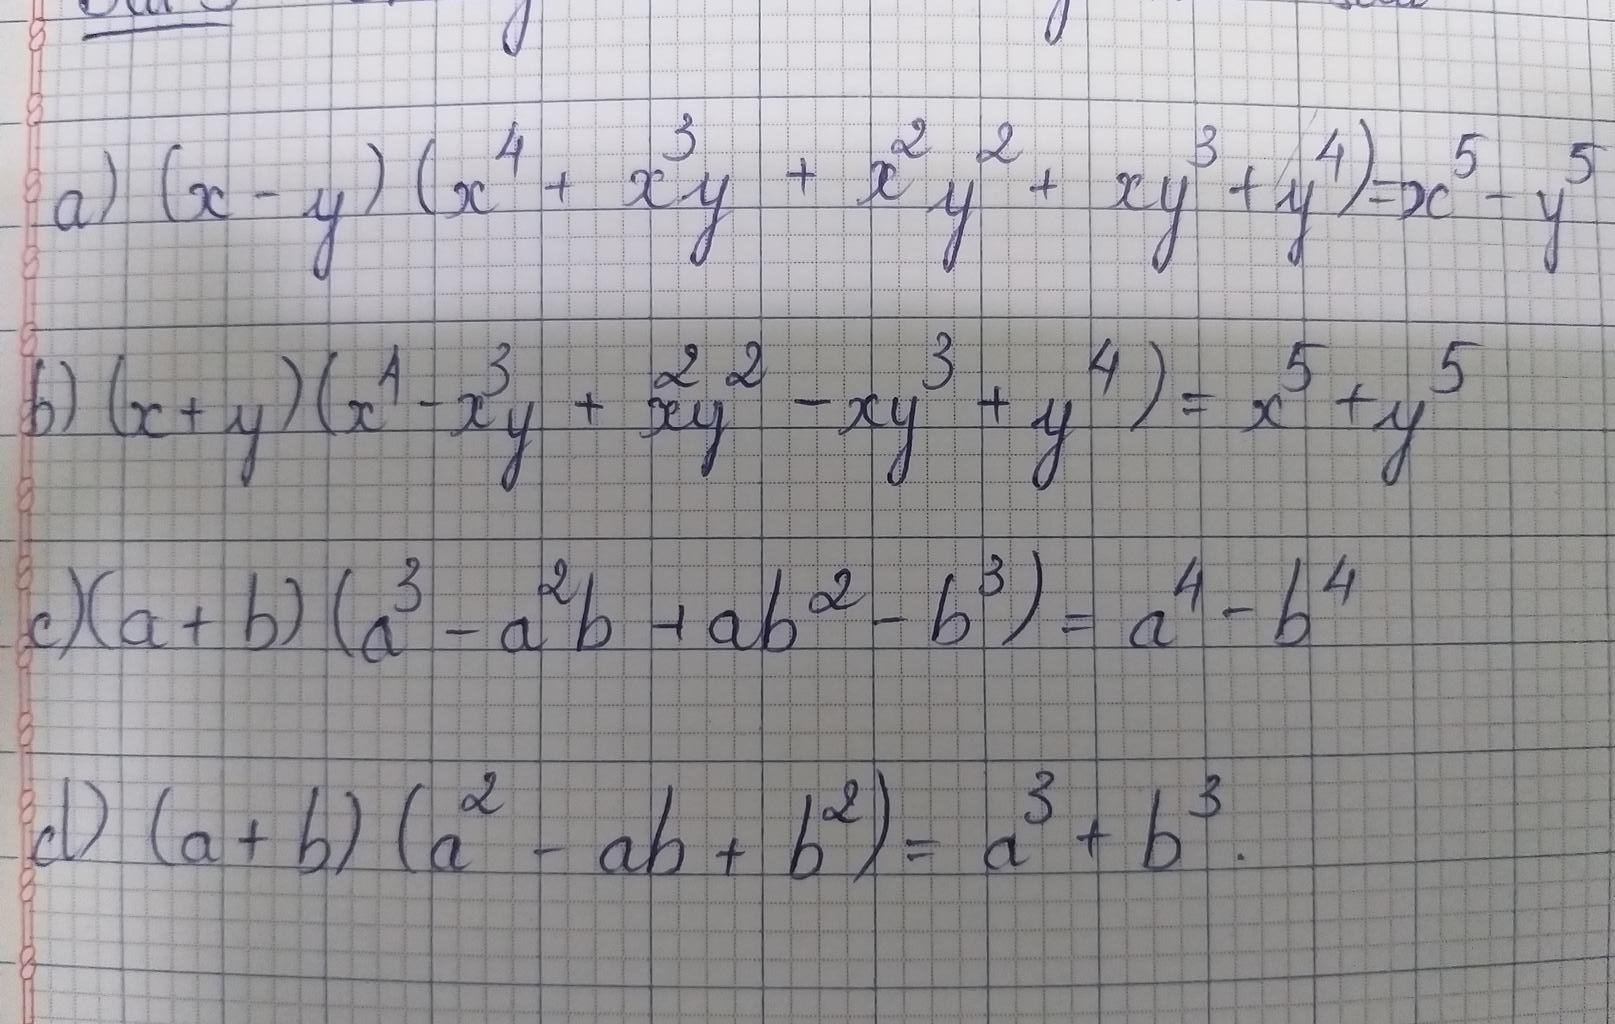 a) (x - y) (x⁴ + x³y + x²y² + xy³ + y⁴) = x⁵ - y⁵
b) (x + y) (x⁴ - x³y + x²y² - xy³ + y⁴) = x⁵ + y⁵
c) (a + b) (a³ - a²b + ab² - b³) = a⁴ - b⁴
d) (a + b) (a² - ab + b²) = a³ + b³.